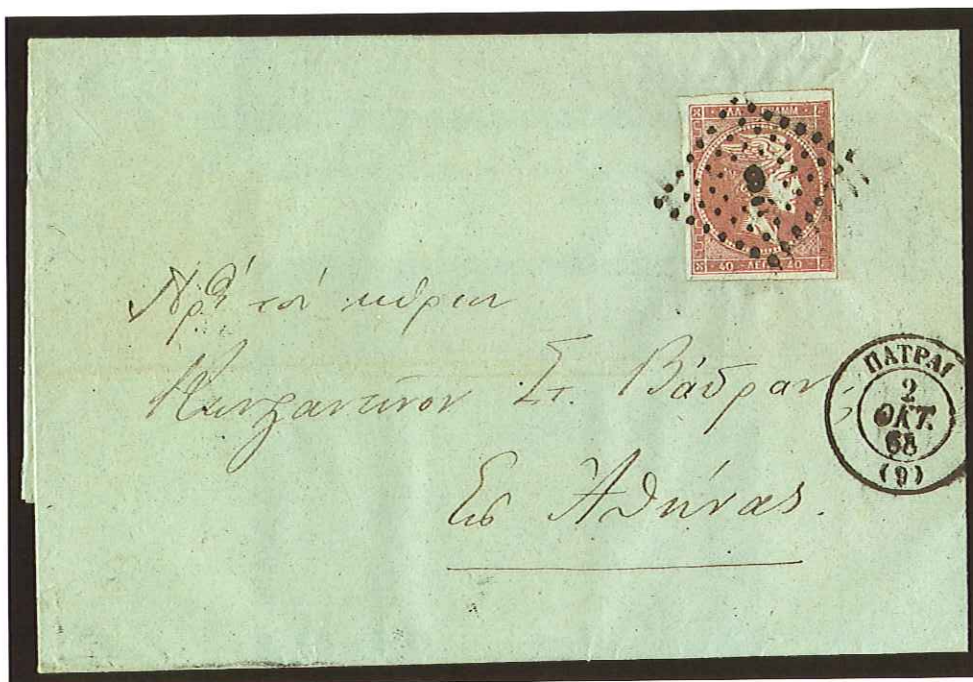 ΕΛΛ ΓΡΑΜΜ
40 ΛΕΠ 40
9
τὸν κύριον
Κωνσταντῖνον Στ. Βάδραν
Εἰς Ἀθήνας.
ΠΑΤΡΑΙ
2
ΟΚΤ.
68
(9)